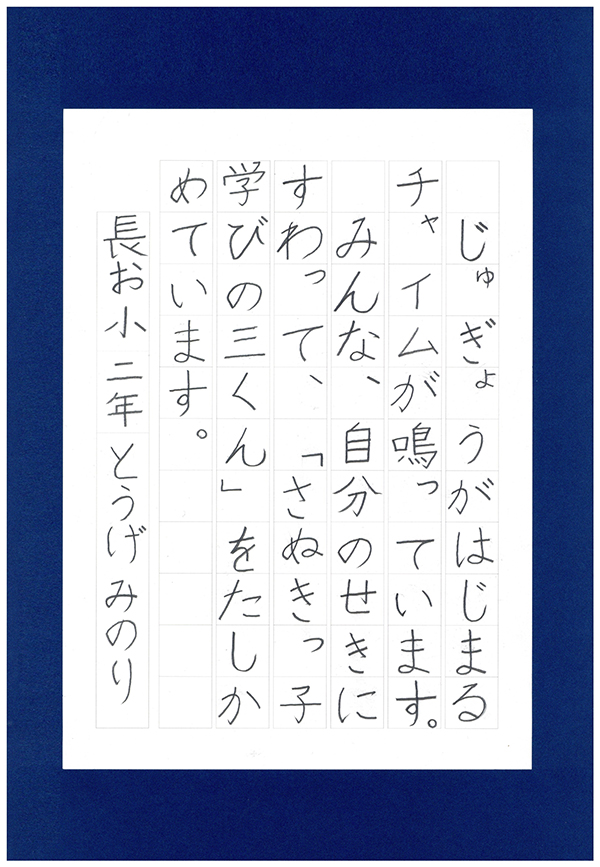 じゅぎょうがはじまる
チャイムが鳴っています。
みんな、自分のせきに
すわって、「さぬきっ子
学びの三くん」をたしか
めています。
長お小 二年 とうげ みのり